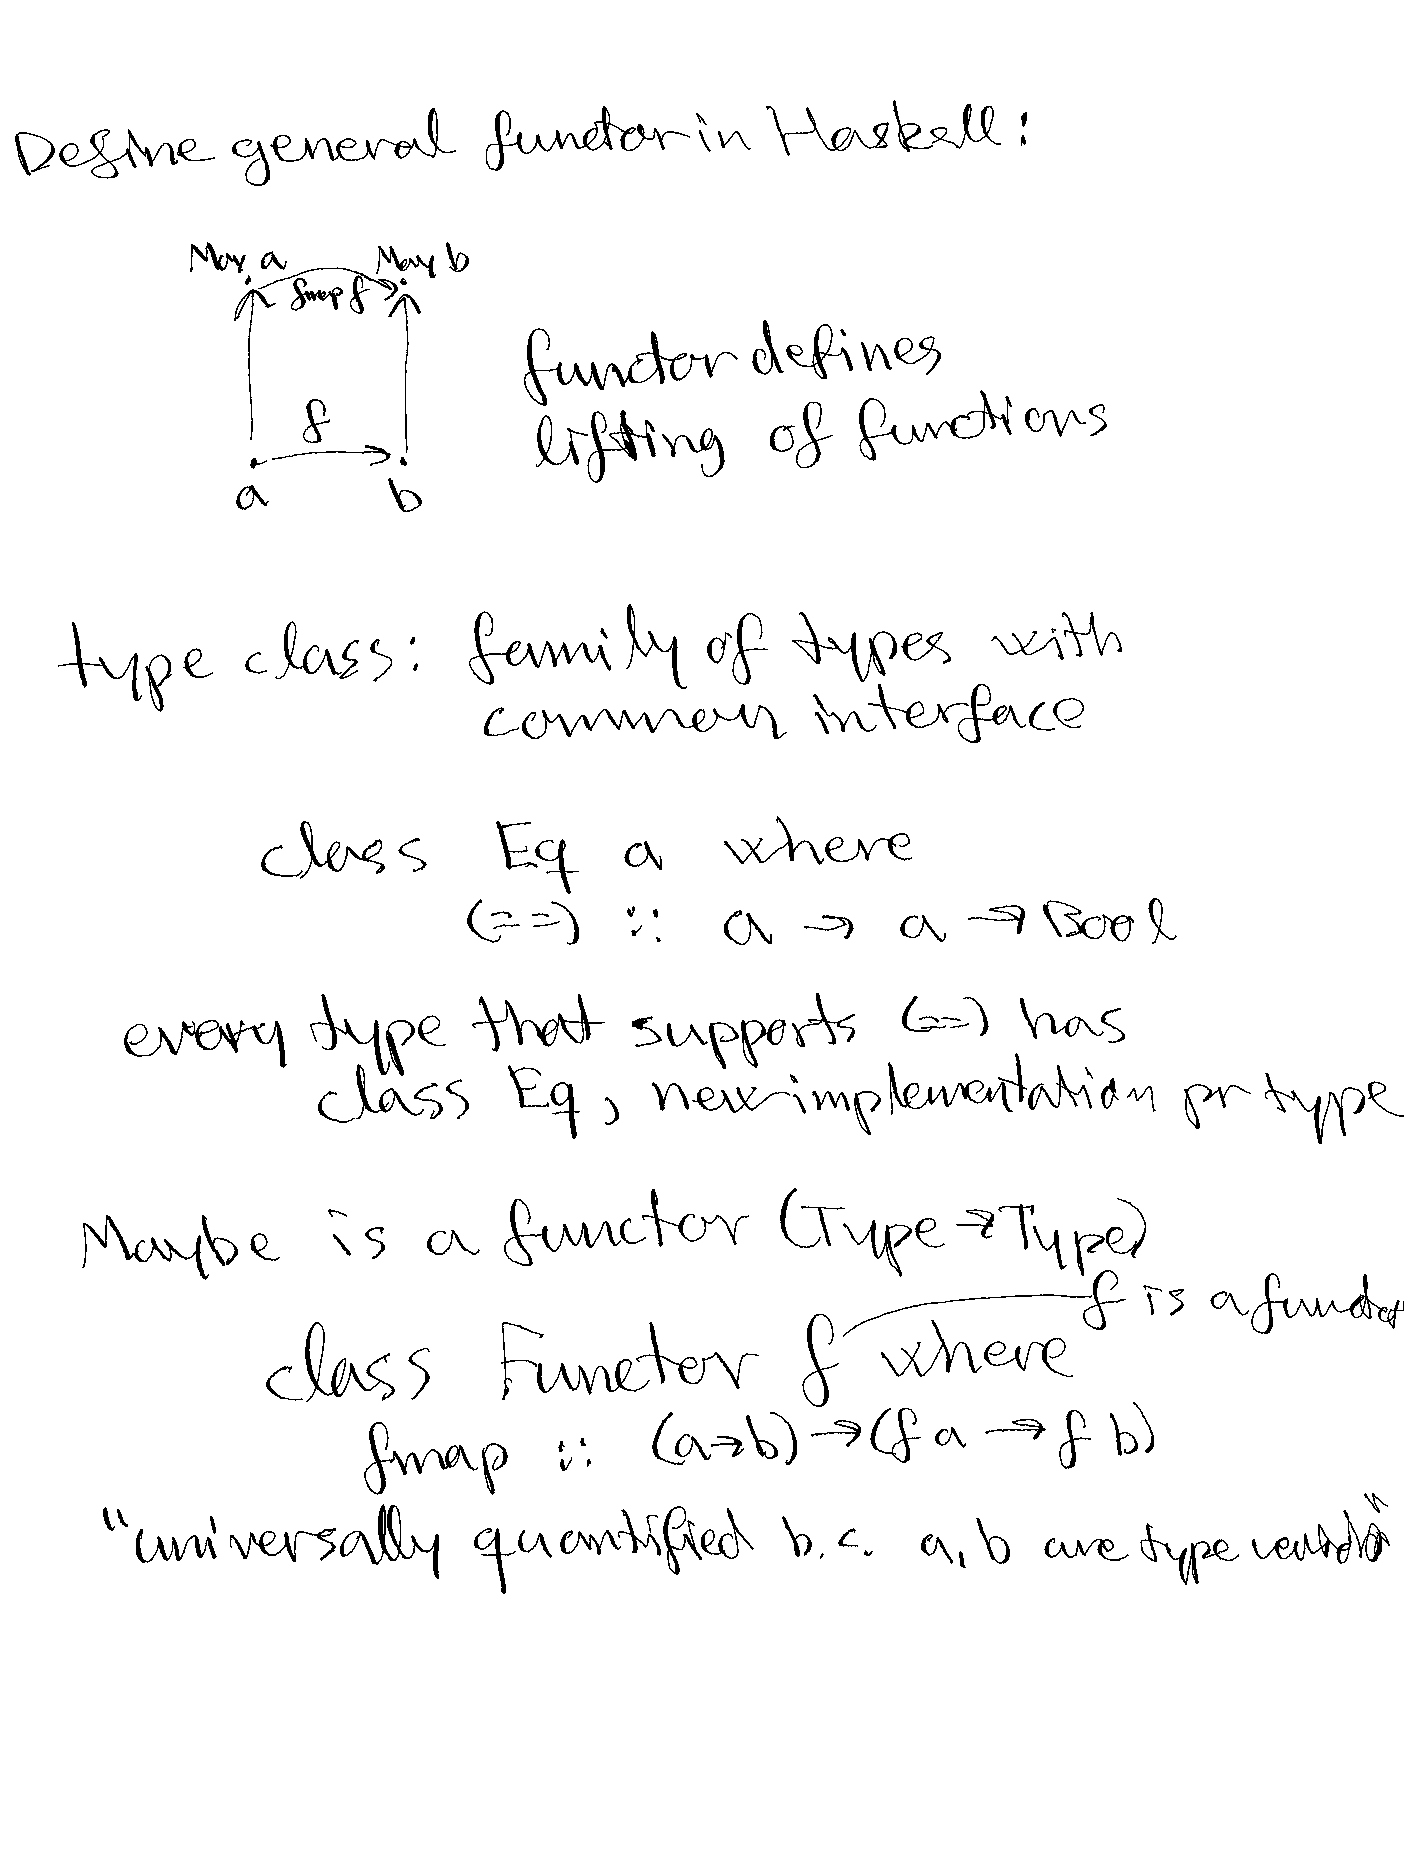 Define general functor in Haskell:
May a May b
fmap f
functor defines
f
lifting of functions
a b
type class: family of types with
common interface
class Eq a where
(==) :: a → a → Bool
every type that supports (==) has
class Eq, new implementation pr type
Maybe is a functor (Type → Type)
f is a functor
class Functor f where
fmap :: (a→b) → (f a → f b)
"universally quantified b.c. a, b are type